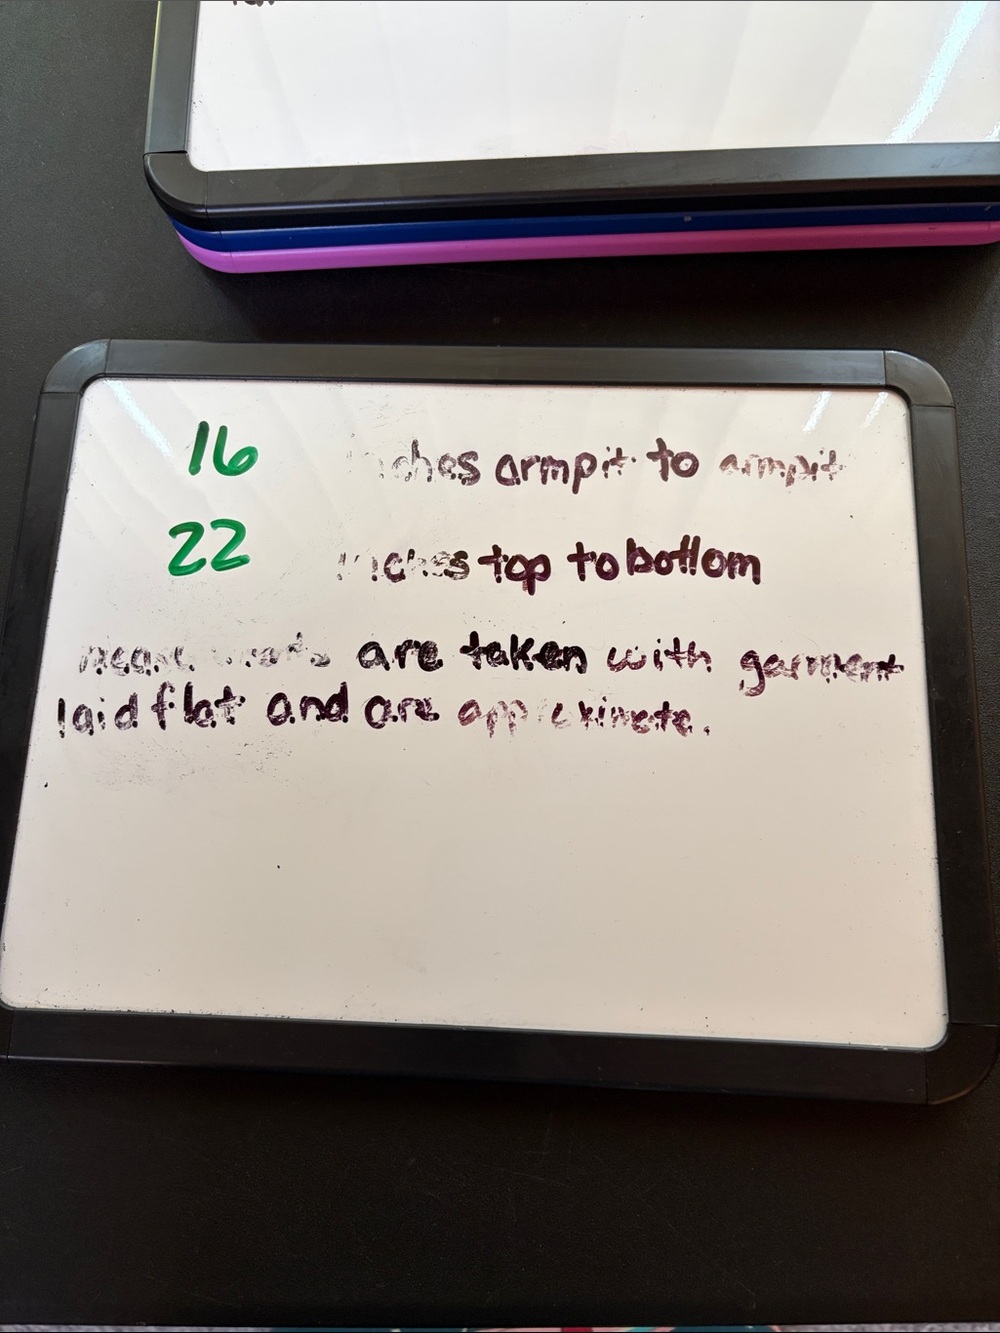 16 inches armpit to armpit
22 inches top to bottom
measurements are taken with garment
laid flat and are approximate.